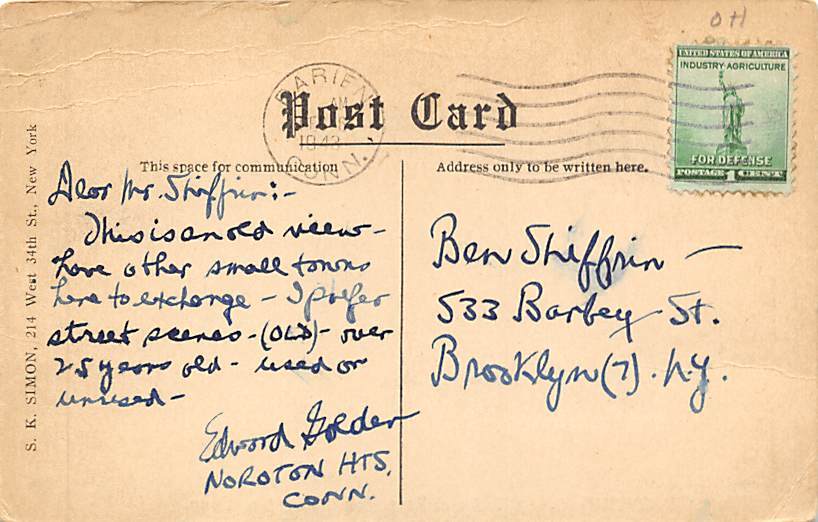 OH
UNITED STATES OF AMERICA
INDUSTRY·AGRICULTURE
FOR DEFENSE
POSTAGE 1 CENT
DARIEN
1943
CONN.
Post Card
This space for communication
Address only to be written here.
S. K. SIMON, 214 West 34th St., New York
Dear Mr. Shiffrin:-
This is an old view-
have other small towns
here to exchange - I prefer
street scenes-(OLD)- over
25 years old - used or
unused-
Edward Golden
NOROTON HTS,
CONN.
Ben Shiffrin -
533 Barbey St.
Brooklyn(7). N.Y.